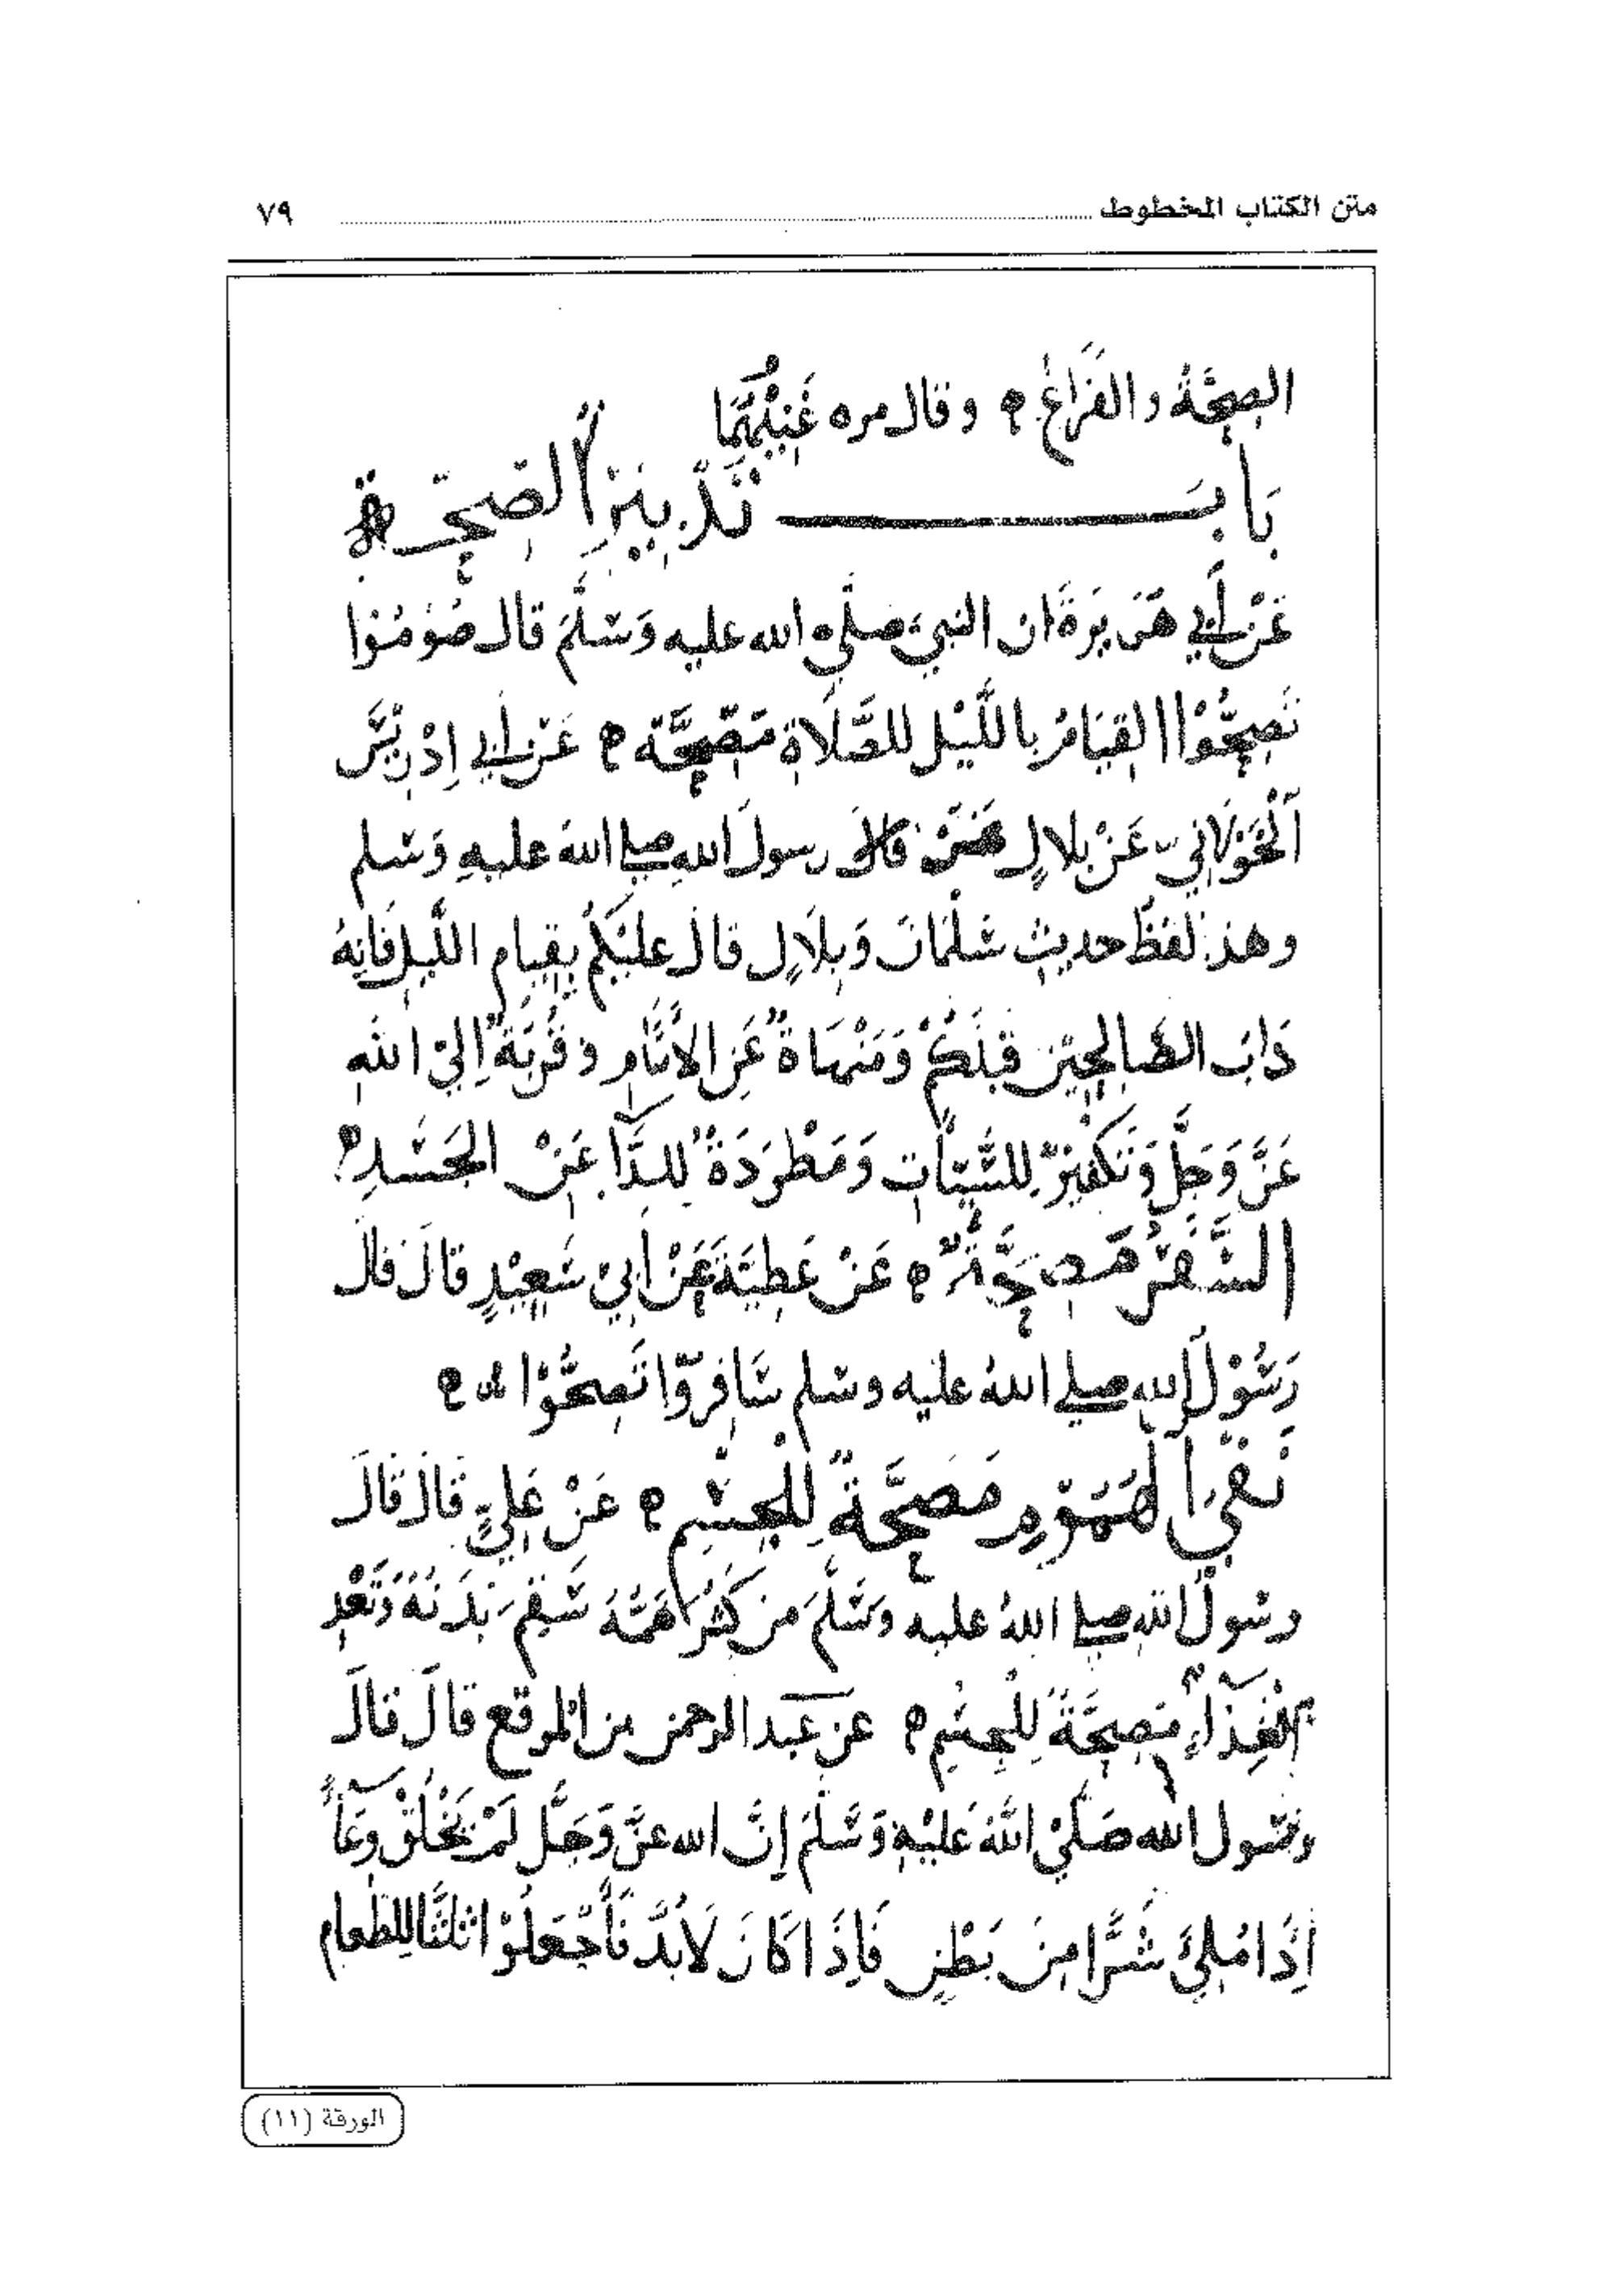 متن الكتاب المخطوط ٧٩
الصِحَّةُ والفَرَاغُ وقال مره
بَابـــــــ تَدْبِيْرِ الصِّحَّةِ
عَنْ أَبي هُرَيرَةَ ان النبي صلى الله عليه وَسَلَّمَ قال صُوْمُوْا
تَصِحُّوْا القِيَامُ باللَّيْلِ للصَّلَاةِ مَصَحَّة عَنْ أبي إدْرِيْسَ
الخَوْلانِي عَنْ بِلالٍ رسول الله صلى الله عليه وَسلم
وهذ لفظ حديث سَلْمَان وَبِلَالٍ قال عليْكُمْ بِقِيام اللَّيلِ فَانِهُ
دَابَ الصَّالِحِيْن قبْلَكُمْ وَمَنْهَاةٌ عَنِ الاثَامِ وقُرْبَةٌ اِلىْ اللهِ
عَزَّ وَجَلَّ وَتَكْفِيْرٌ لِلسَّيّأَتِ وَمَطْرَدَةٌ لِلدَّآ عَنْ الجَسَدِ
السَّفَرُ مَصَحَّةٌ عَنْ عَطِيَّةَ عَنْ أَبيْ سَعِيْدٍ قالَ قال
رَسُوْل الله صلى اللهُ عليه وسلم سَافِرُوْا تَصِحُّوْا
نَفْيُ الهُمُوْمِ مَصَحَّةٌ لِلْجِسْمِ عَنْ عَلِيٍّ قَالَ قَالَ
رسول الله صلى اللهُ عليه وَسَلَّمَ مَن كَثُرَ هَمُّهُ سَقِمَ بَدَنُهُ
الغِذَآءِ مَصَحَّةٌ لِلْجِسْمِ عن عَبد الرحمن بن المرقع قالَ قالَ
رسُول الله صَلَّىْ اللَّهُ عَلَيْهِ وَسَلَّمَ إنَّ الله عزَّ وَجَلَّ لَمْ يَخْلُقْ وِعَآءً
اِذَا مُلِئَ شَرًّا مِنْ بَطْنٍ فَاِذَا كَانَ لَابُدَّ فَأجْعَلُوْا ثُلثًا لِلطعام
الورقة (١١)